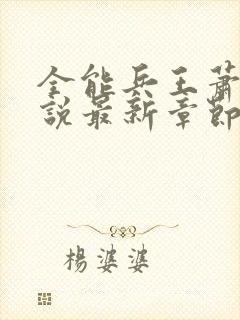 全能兵王蕭
說最新章節
楊婆婆